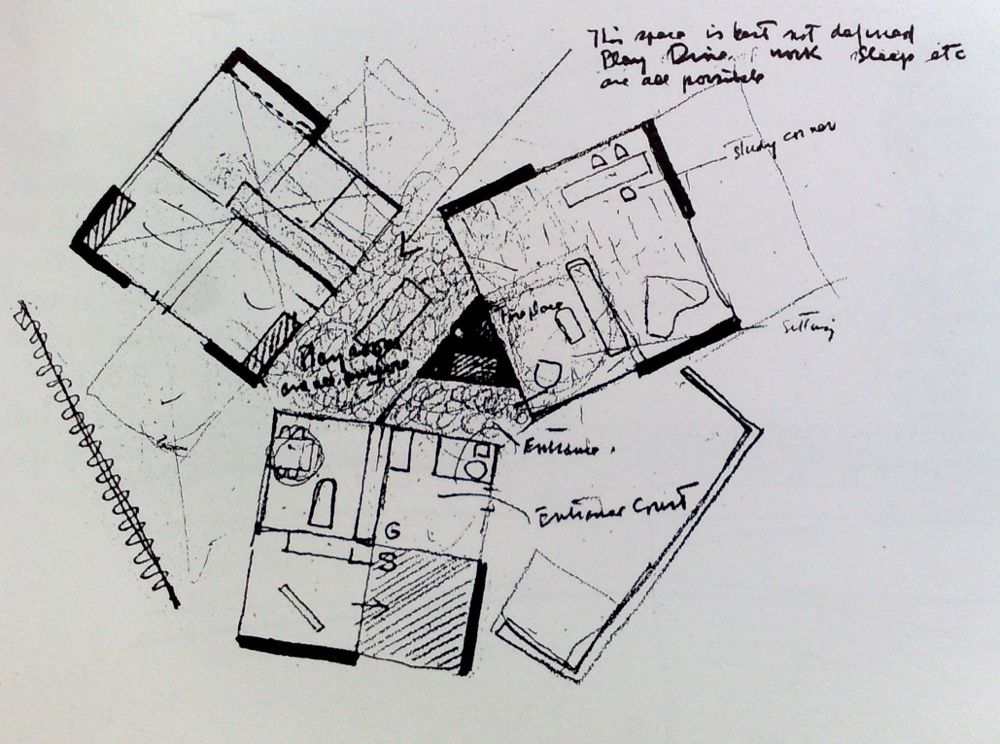 This space is best not defined
Play Dine, work sleep etc
are all possible
study corner
Fireplace
Sitting
Play
are all
Entrance.
Entrance Court
G
S